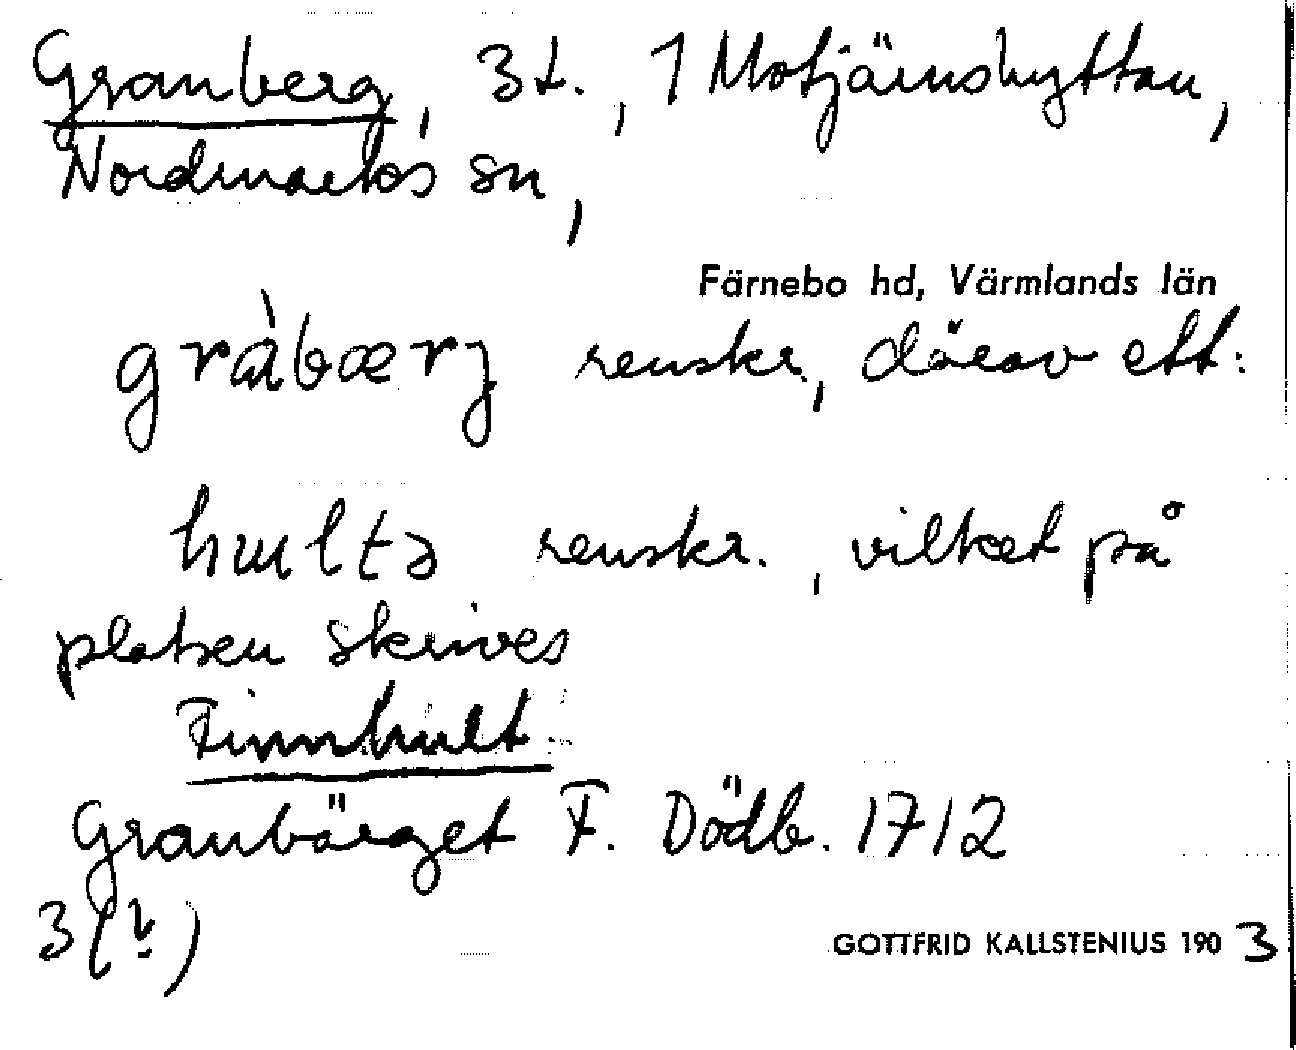 Granberg, 3 t., 1 Motjärnshyttan,
Nordmarks sn,
Färnebo hd, Värmlands län
gràbærj renskr., därav ett:
hultə renskr., vilket på
platsen skrives
Finnhult
Granbärget F. Dödb. 1712
3 ( )
GOTTFRID KALLSTENIUS 1903